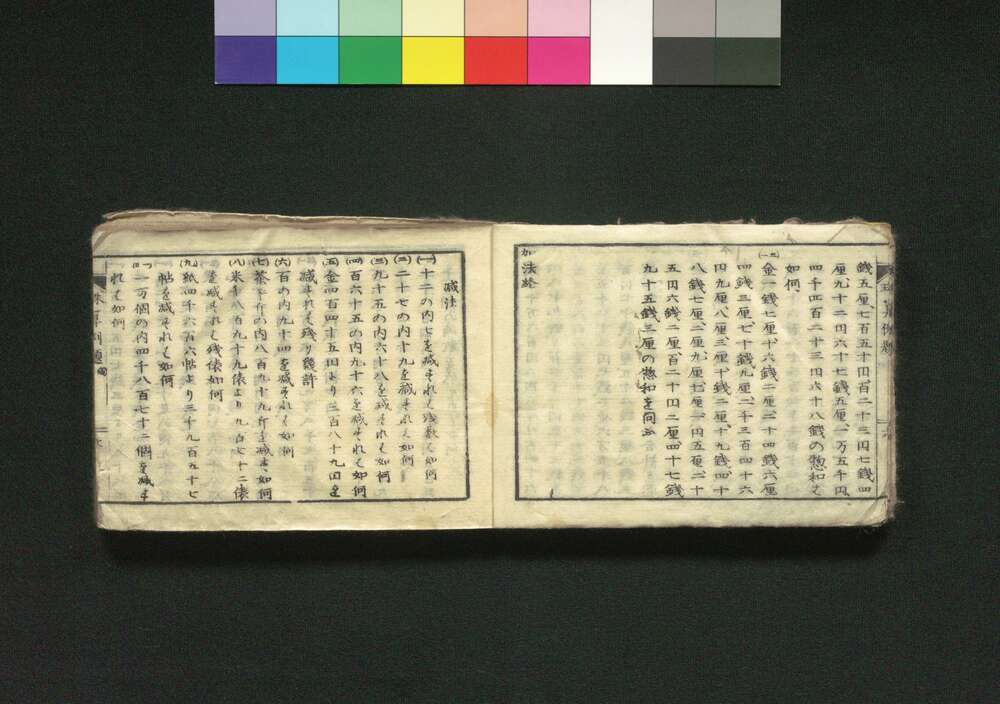 錢五厘、七百五十円、百二十三円七錢四
厘、九十二円六十七錢五厘、一万五千円、
四千四百二十三円六十八錢の惣和は
如何
金一錢七厘、十六錢二厘、二十四錢六厘
四錢三厘、七十錢九厘、二千三百四十六
円九厘、八厘、三厘、十錢二厘、十九錢、四十
八錢七厘、二厘、九厘、七厘、一円五厘、二十
五円六錢二厘、百二十円二厘、四十七錢
九十五錢三厘の惣和を問ふ
加法終
減法
(一)十二の内七を減ずれバ残数ハ如何
(二)二十七の内十九を減ずれバ如何
(三)九十五の内六十八を減ずれバ如何
(四)百六十五の内九十六を減ずれバ如何
(五)金四百四十五円より三百八十九円を
減ずれバ残り幾許
(六)百の内九十四を減ずれバ如何
(七)茶千斤の内八百九十九斤を減ず、如何
(八)米千八百九十九俵より九百七十二俵
を減ずれバ残俵如何
(九)紙四千六百六帖より三千九百五十七
帖を減ずれバ如何
一万個の内四千八百七十二個を減ず
れバ如何